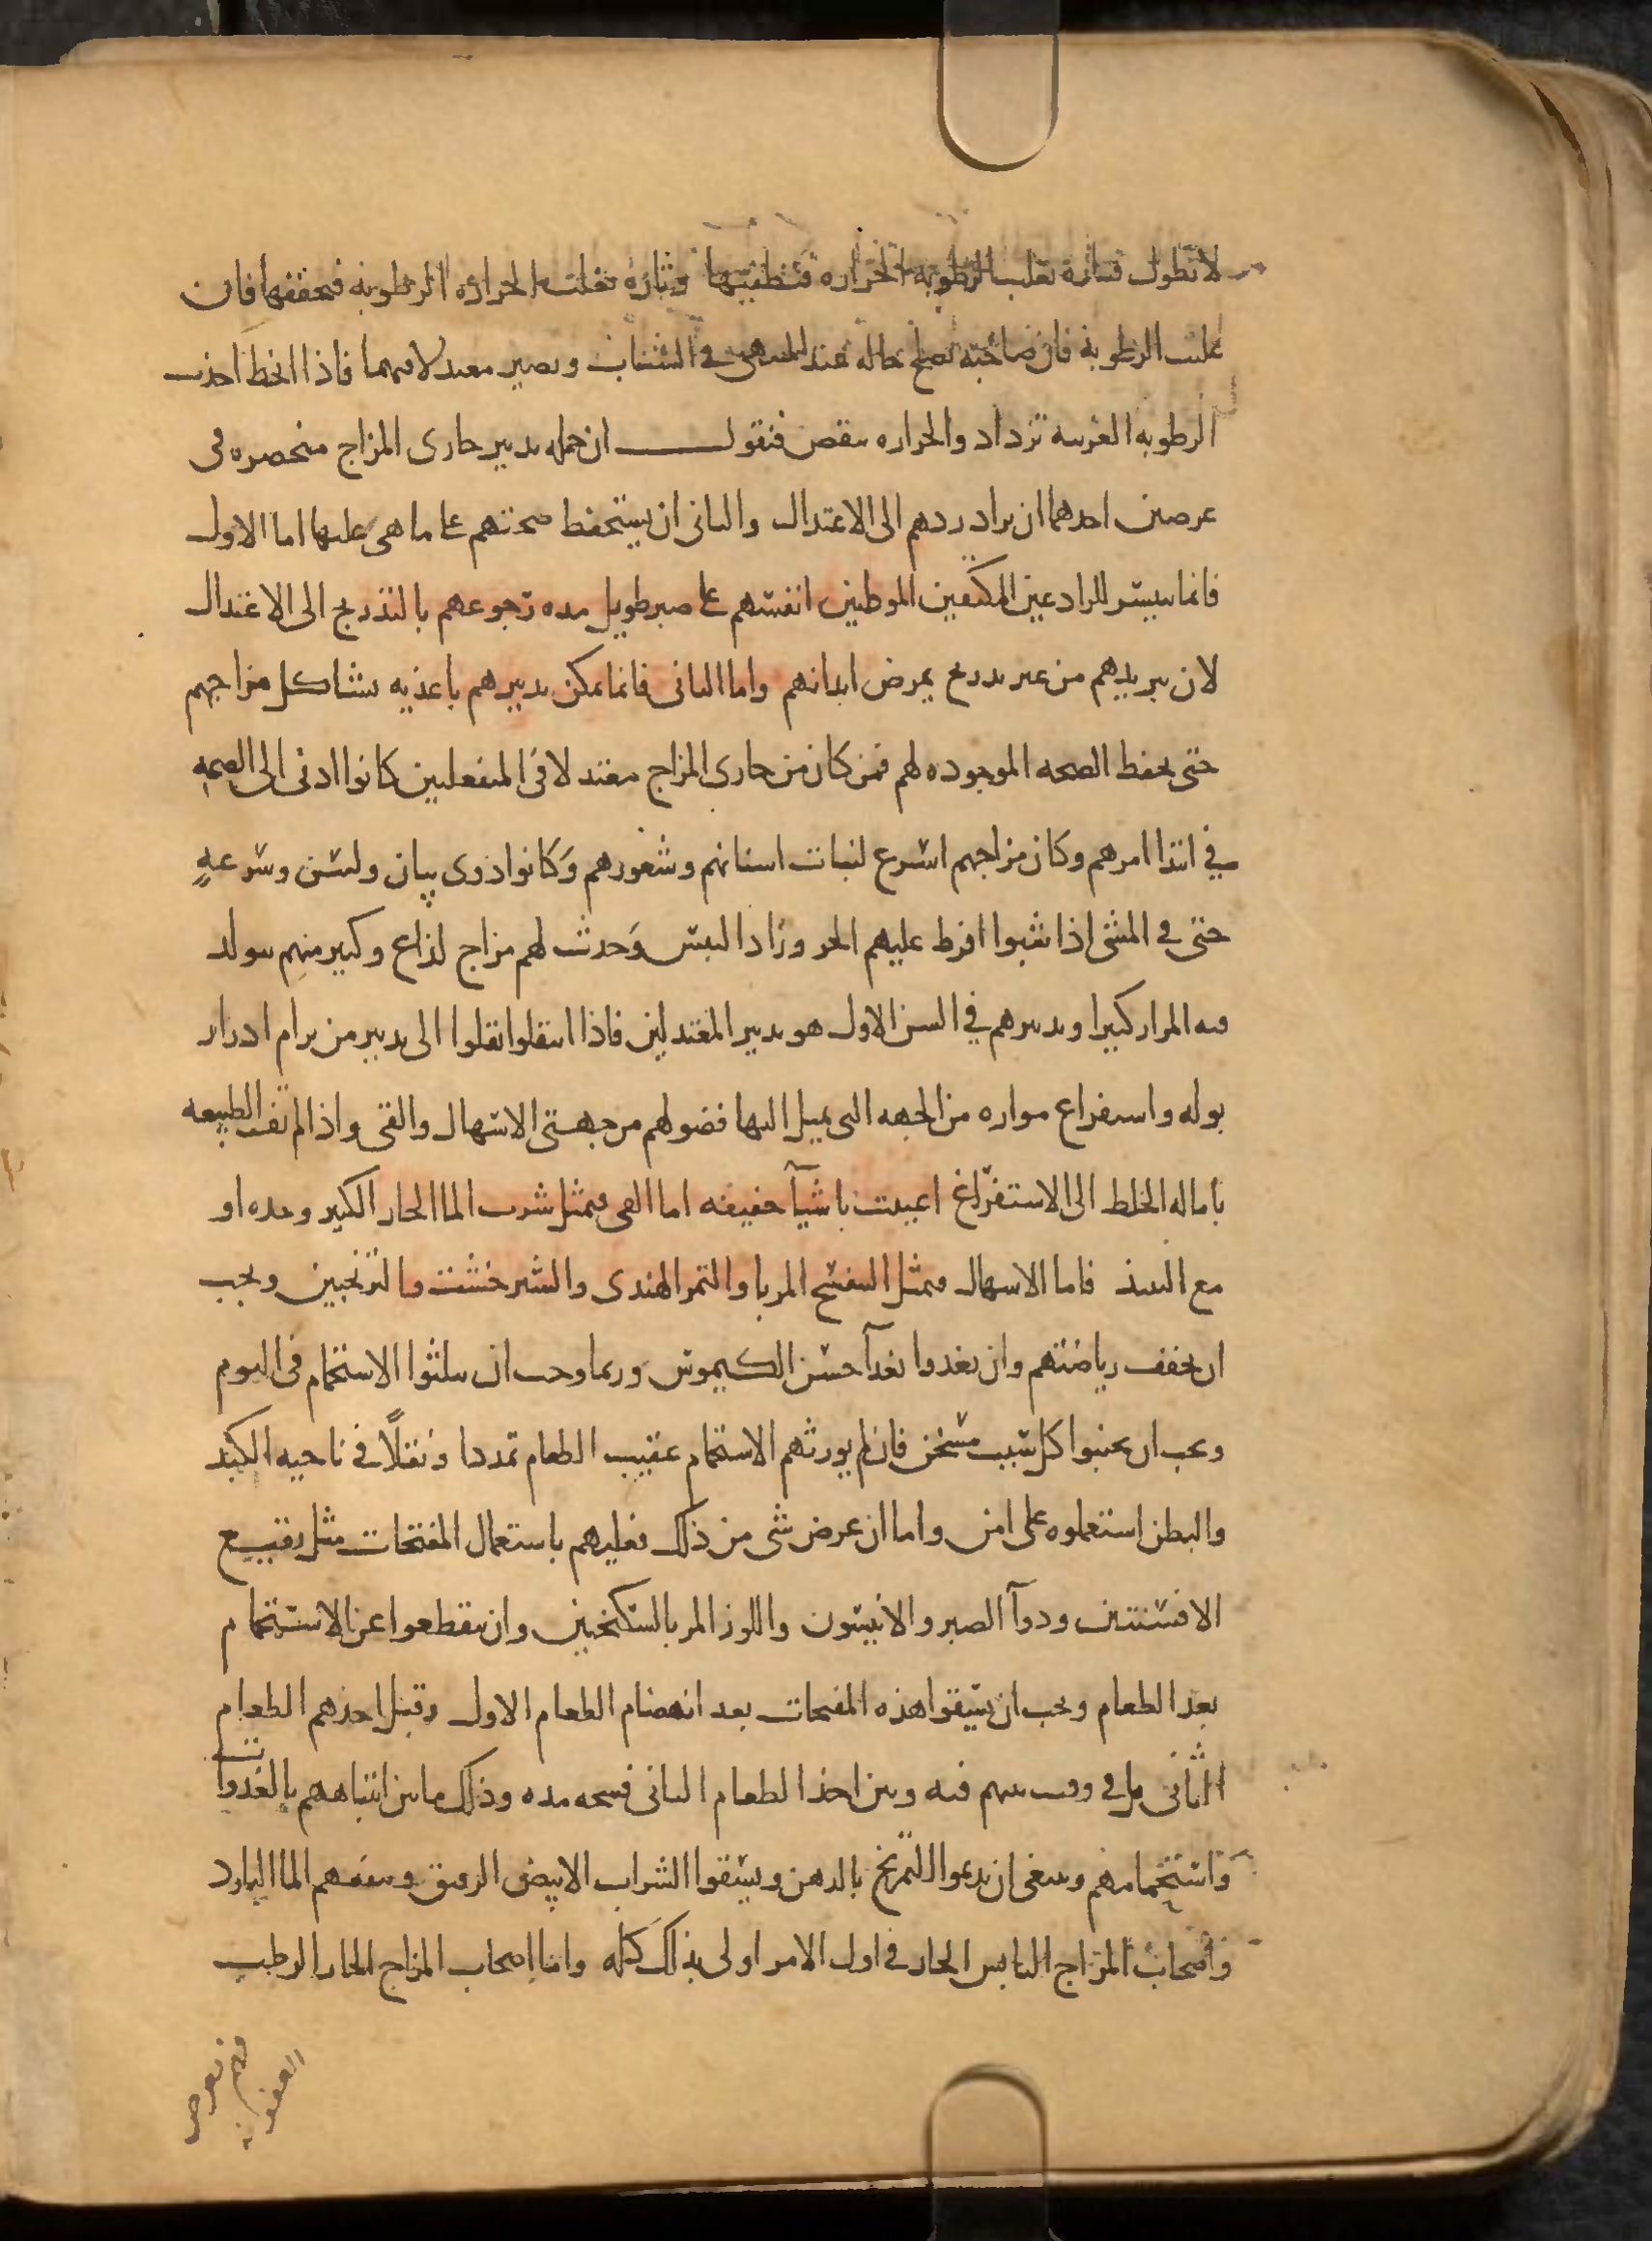 لا تطول فتارة تغلب الرطوبة الحراره فتطفيها وتارة تغلب الحراره الرطوبة فتجففها فان
غلبت الرطوبة فان صاحبه تصلح حاله عند المنتهى في الشباب ويصير معتدلا فيهما فاذا انحط اخذت
الرطوبه الغريبة تزداد والحراره تنقص فنقول ان جمله تدبير حارى المزاج منحصره فى
غرضين احدهما ان يراد ردهم الى الاعتدال والثانى ان يستحفظ صحتهم على ما هى عليها اما الاول
فانما يتيسر للرادعين المكتفين الموطنين انفسهم على صبر طويل مده رجوعهم بالتدريج الى الاعتدال
لان تبريدهم من غير تدريج يمرض ابدانهم واما الثانى فانما يمكن تدبيرهم باغذيه تشاكل مزاجهم
حتى يحفظ الصحه الموجوده لهم فمن كان من حارى المزاج معتدلا فى المنفعلين كانوا ادنى الى الصحه
في ابتدا امرهم وكان مزاجهم اسرع لنبات اسنانهم وشعورهم وكانوا ذوى بيان ولسن وسرعةٍ
حتى في المشى اذا شبوا افرط عليهم الحر وزاد اليبس وحدث لهم مزاج لذاع وكثير منهم يتولد
فيه المرار كثيرا وتدبيرهم في السن الاول هو تدبير المعتدلين فاذا انتقلوا نقلوا الى تدبير من يرام ادرار
بوله واستفراغ مراره من الجهه التى يميل اليها فضولهم من جهتى الاسهال والقى واذا لم تف الطبيعه
باماله الخلط الى الاستفراغ اعينت باشيآ خفيفه اما القى فمثل شرب الما الحار الكثير وحده او
مع النبيذ فاما الاسهال فمثل البنفسج المربا والتمر الهندى والشيرخشت والترنجبين ويجب
ان يخفف رياضتهم وان يغذوا بغدآ حسن الكيموس وربما وجب ان يثلثوا الاستحمام فى اليوم
ويجب ان يجنبوا كل سبب مسخن فان لم يورثهم الاستحمام عقيب الطعام تمددا وثقلاً في ناحيه الكبد
والبطن استعملوه على امن واما ان عرض شى من ذلك فعليهم باستعمال المفتحات مثل نقيع
الافسنتين ودوآ الصبر والانيسون واللوز المر بالسكنجبين وان يقطعوا عن الاستحمام
بعد الطعام ويجب ان يسقوا هذه المفتحات بعد انهضام الطعام الاول وقبل اخذهم الطعام
الثانى بل في وقت بينهم فيه وبين اخذ الطعام الثانى فسحه مده وذلك ما بين انتباههم بالغدوات
واستحمامهم وينبغى ان يديموا التمريخ بالدهن ويسقوا الشراب الابيض الرقيق وينفعهم الما البارد
واصحاب المزاج اليابس الحار في اول الامر اولى بذلك كله واما اصحاب المزاج الحار الرطب
فهم بعرض
العفونه